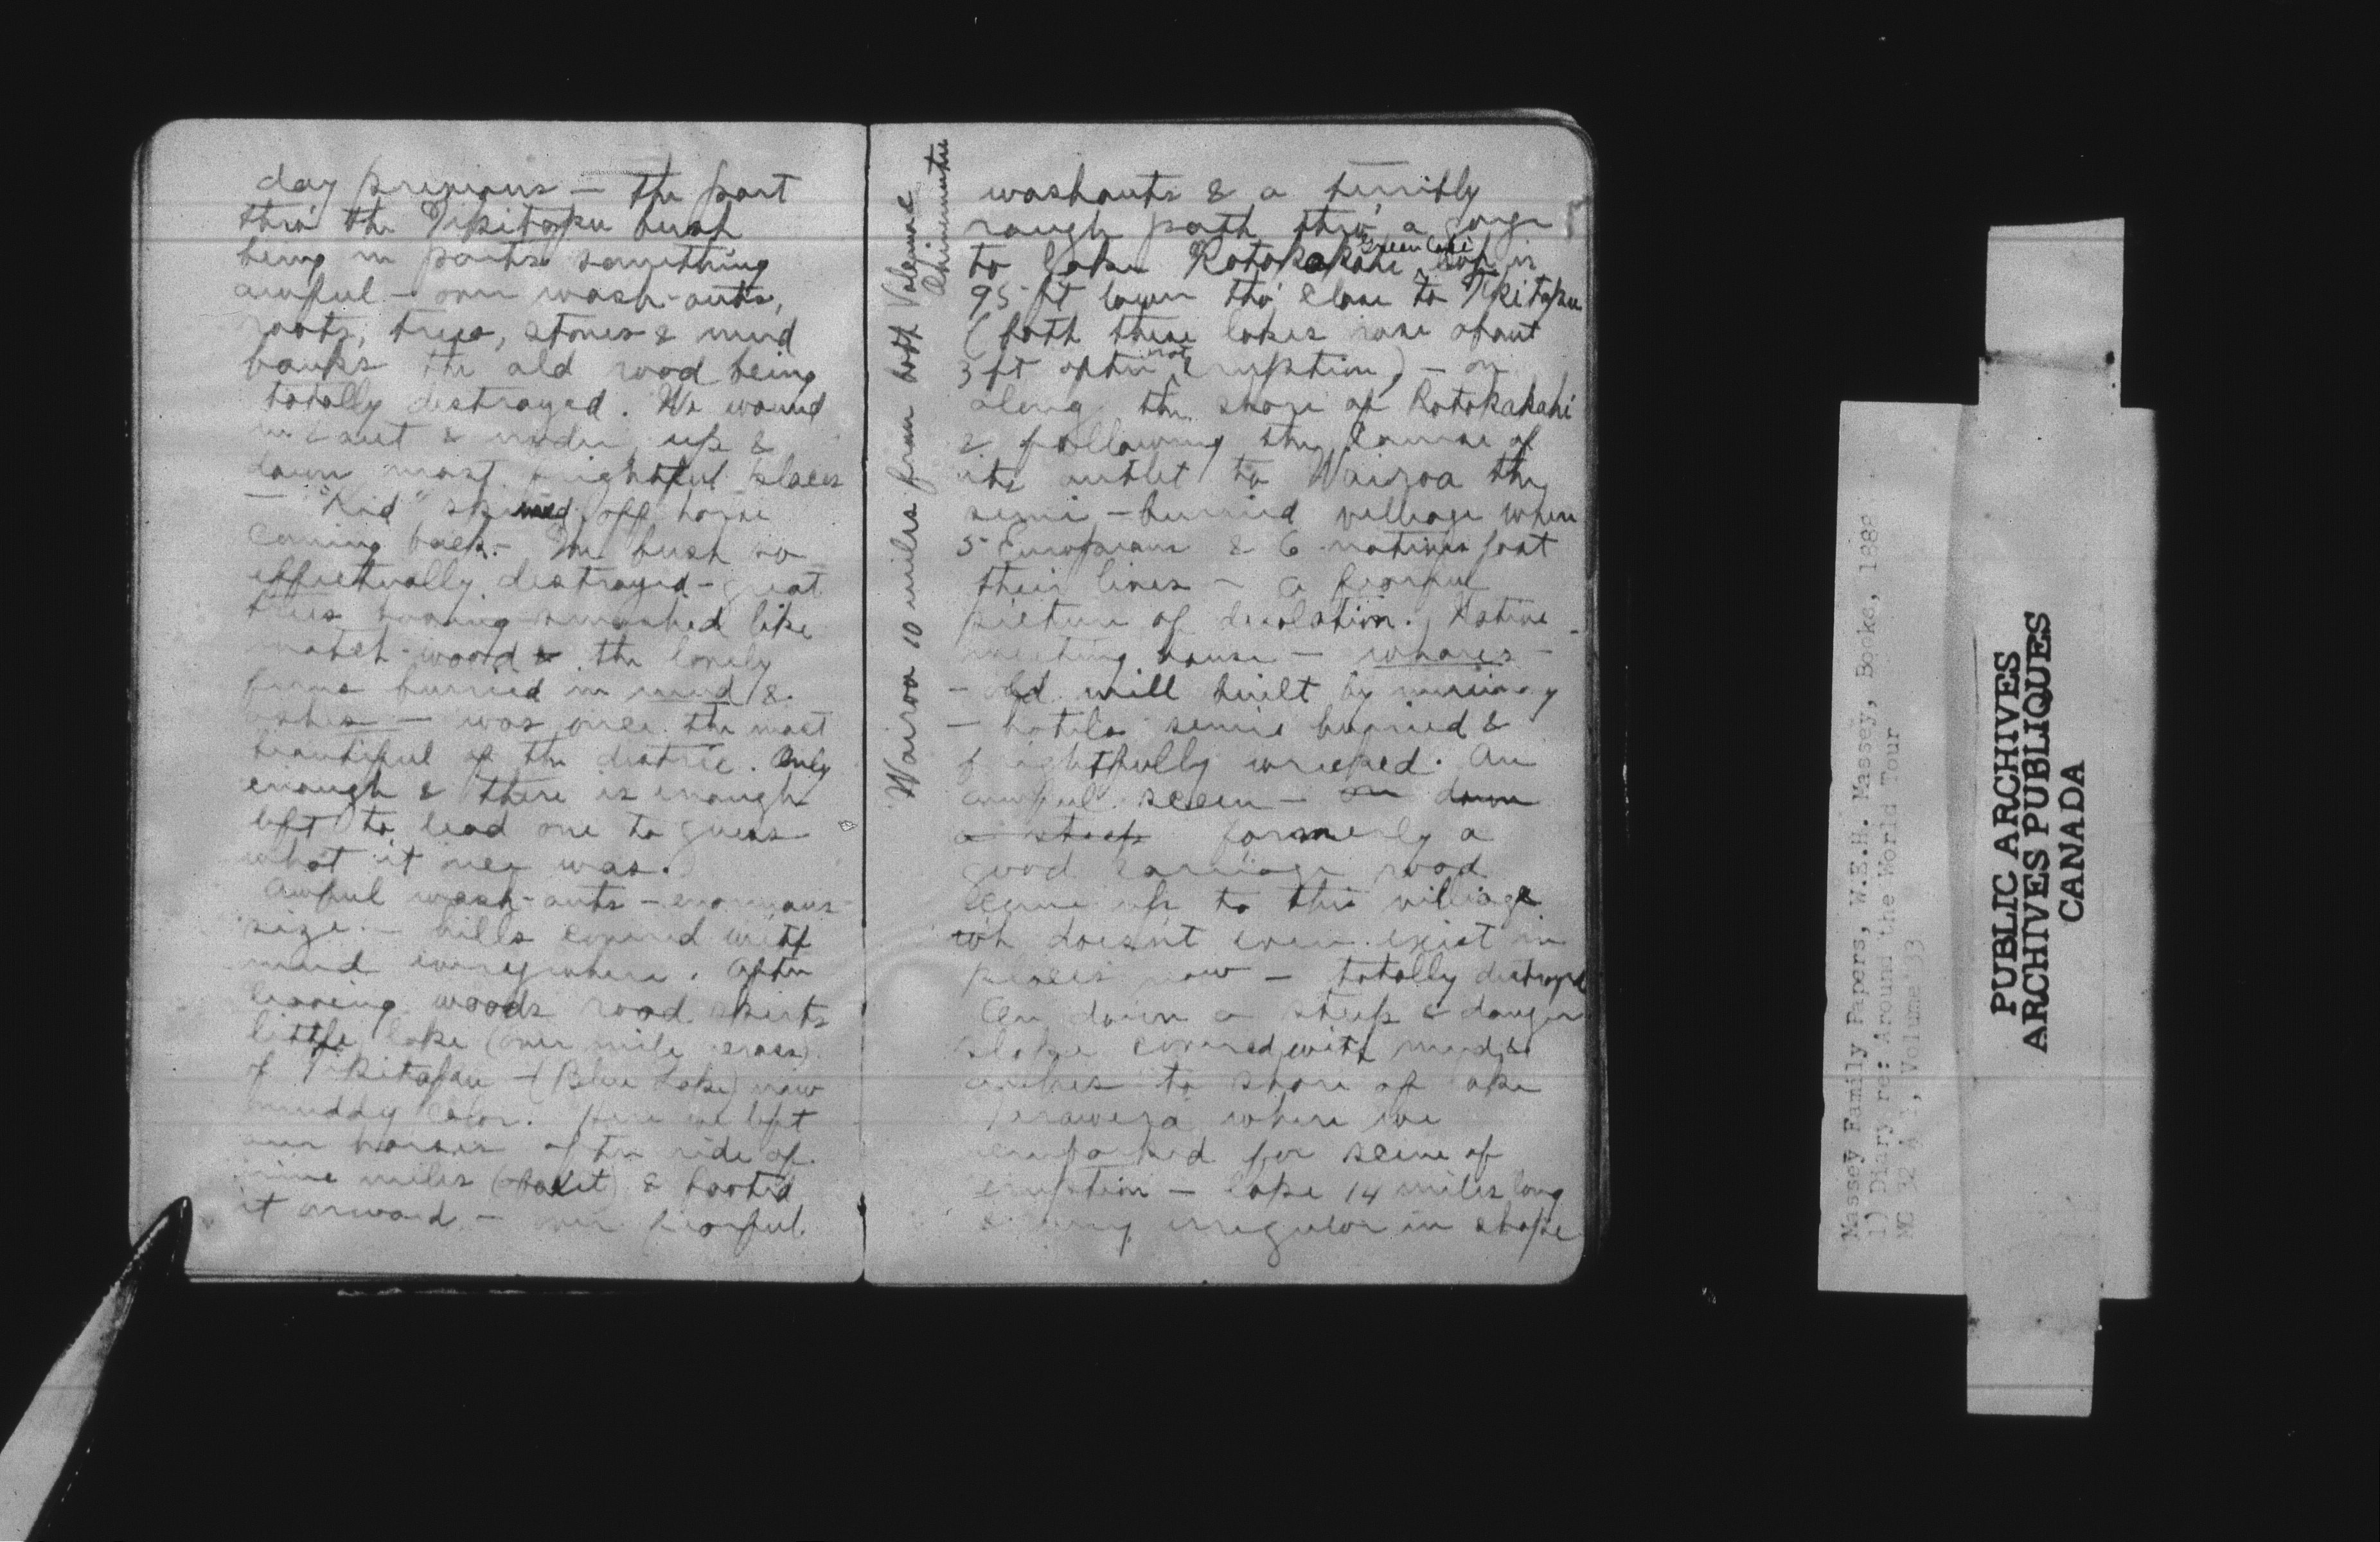 day previous — the part
thro' the Tikitapu bush
being in parts something
awful — over wash-outs,
roots, trees, stones & mud
banks the old road being
totally destroyed. We wound
in & out & under, up &
down most frightful places
— "Kid" off horse
coming back. — The bush so
effectually destroyed — great
trees having smashed like
match-wood & the lovely
ferns burried in mud &
ashes — was once the most
beautiful of the distric. Only
enough & there is enough
left to lead one to guess
what it once was.
Awful wash-outs — enormous
size. — hills covered with
mud everywhere. After
leaving woods road skirts
little lake (over mile across)
of Tikitapu — (Blue Lake) now
muddy color. Here we left
our horses after ride of
nine miles (about) & footed
it onward — over fearful
Wairoa 10 miles from both
Ohinemutu
washouts & a terribly
rough path thro' a gorge
to Lake Rotokakahi (Green Lake) is
95 ft lower tho' close to Tikitapu
(both these lakes rose about
3 ft after eruption) — on
along the shore of Rotokakahi
& following the course of
its outlet to Wairoa the
semi-burried village when
5 Europeans & 6 natives lost
their lives — a fearful
picture of desolation. Native
meeting house — whares —
— old mill built by
— hotels semi burried &
frightfully wrecked. An
awful seen — on down
a steep formerly a
good carriage road
came up to this village
wh doesn't even exist in
pieces now — totally destroyed
On down a steep & danger
slope covered with mud &
ashes to shore of Lake
Tarawera where we
embarked for scene of
eruption — Lake 14 miles long
& very irregular in shape
PUBLIC ARCHIVES
ARCHIVES PUBLIQUES
CANADA
Massey Family Papers, W.E.H. Massey, Books, 1888
1) Diary re: Around the World Tour
MG 32 A 1, Volume 33